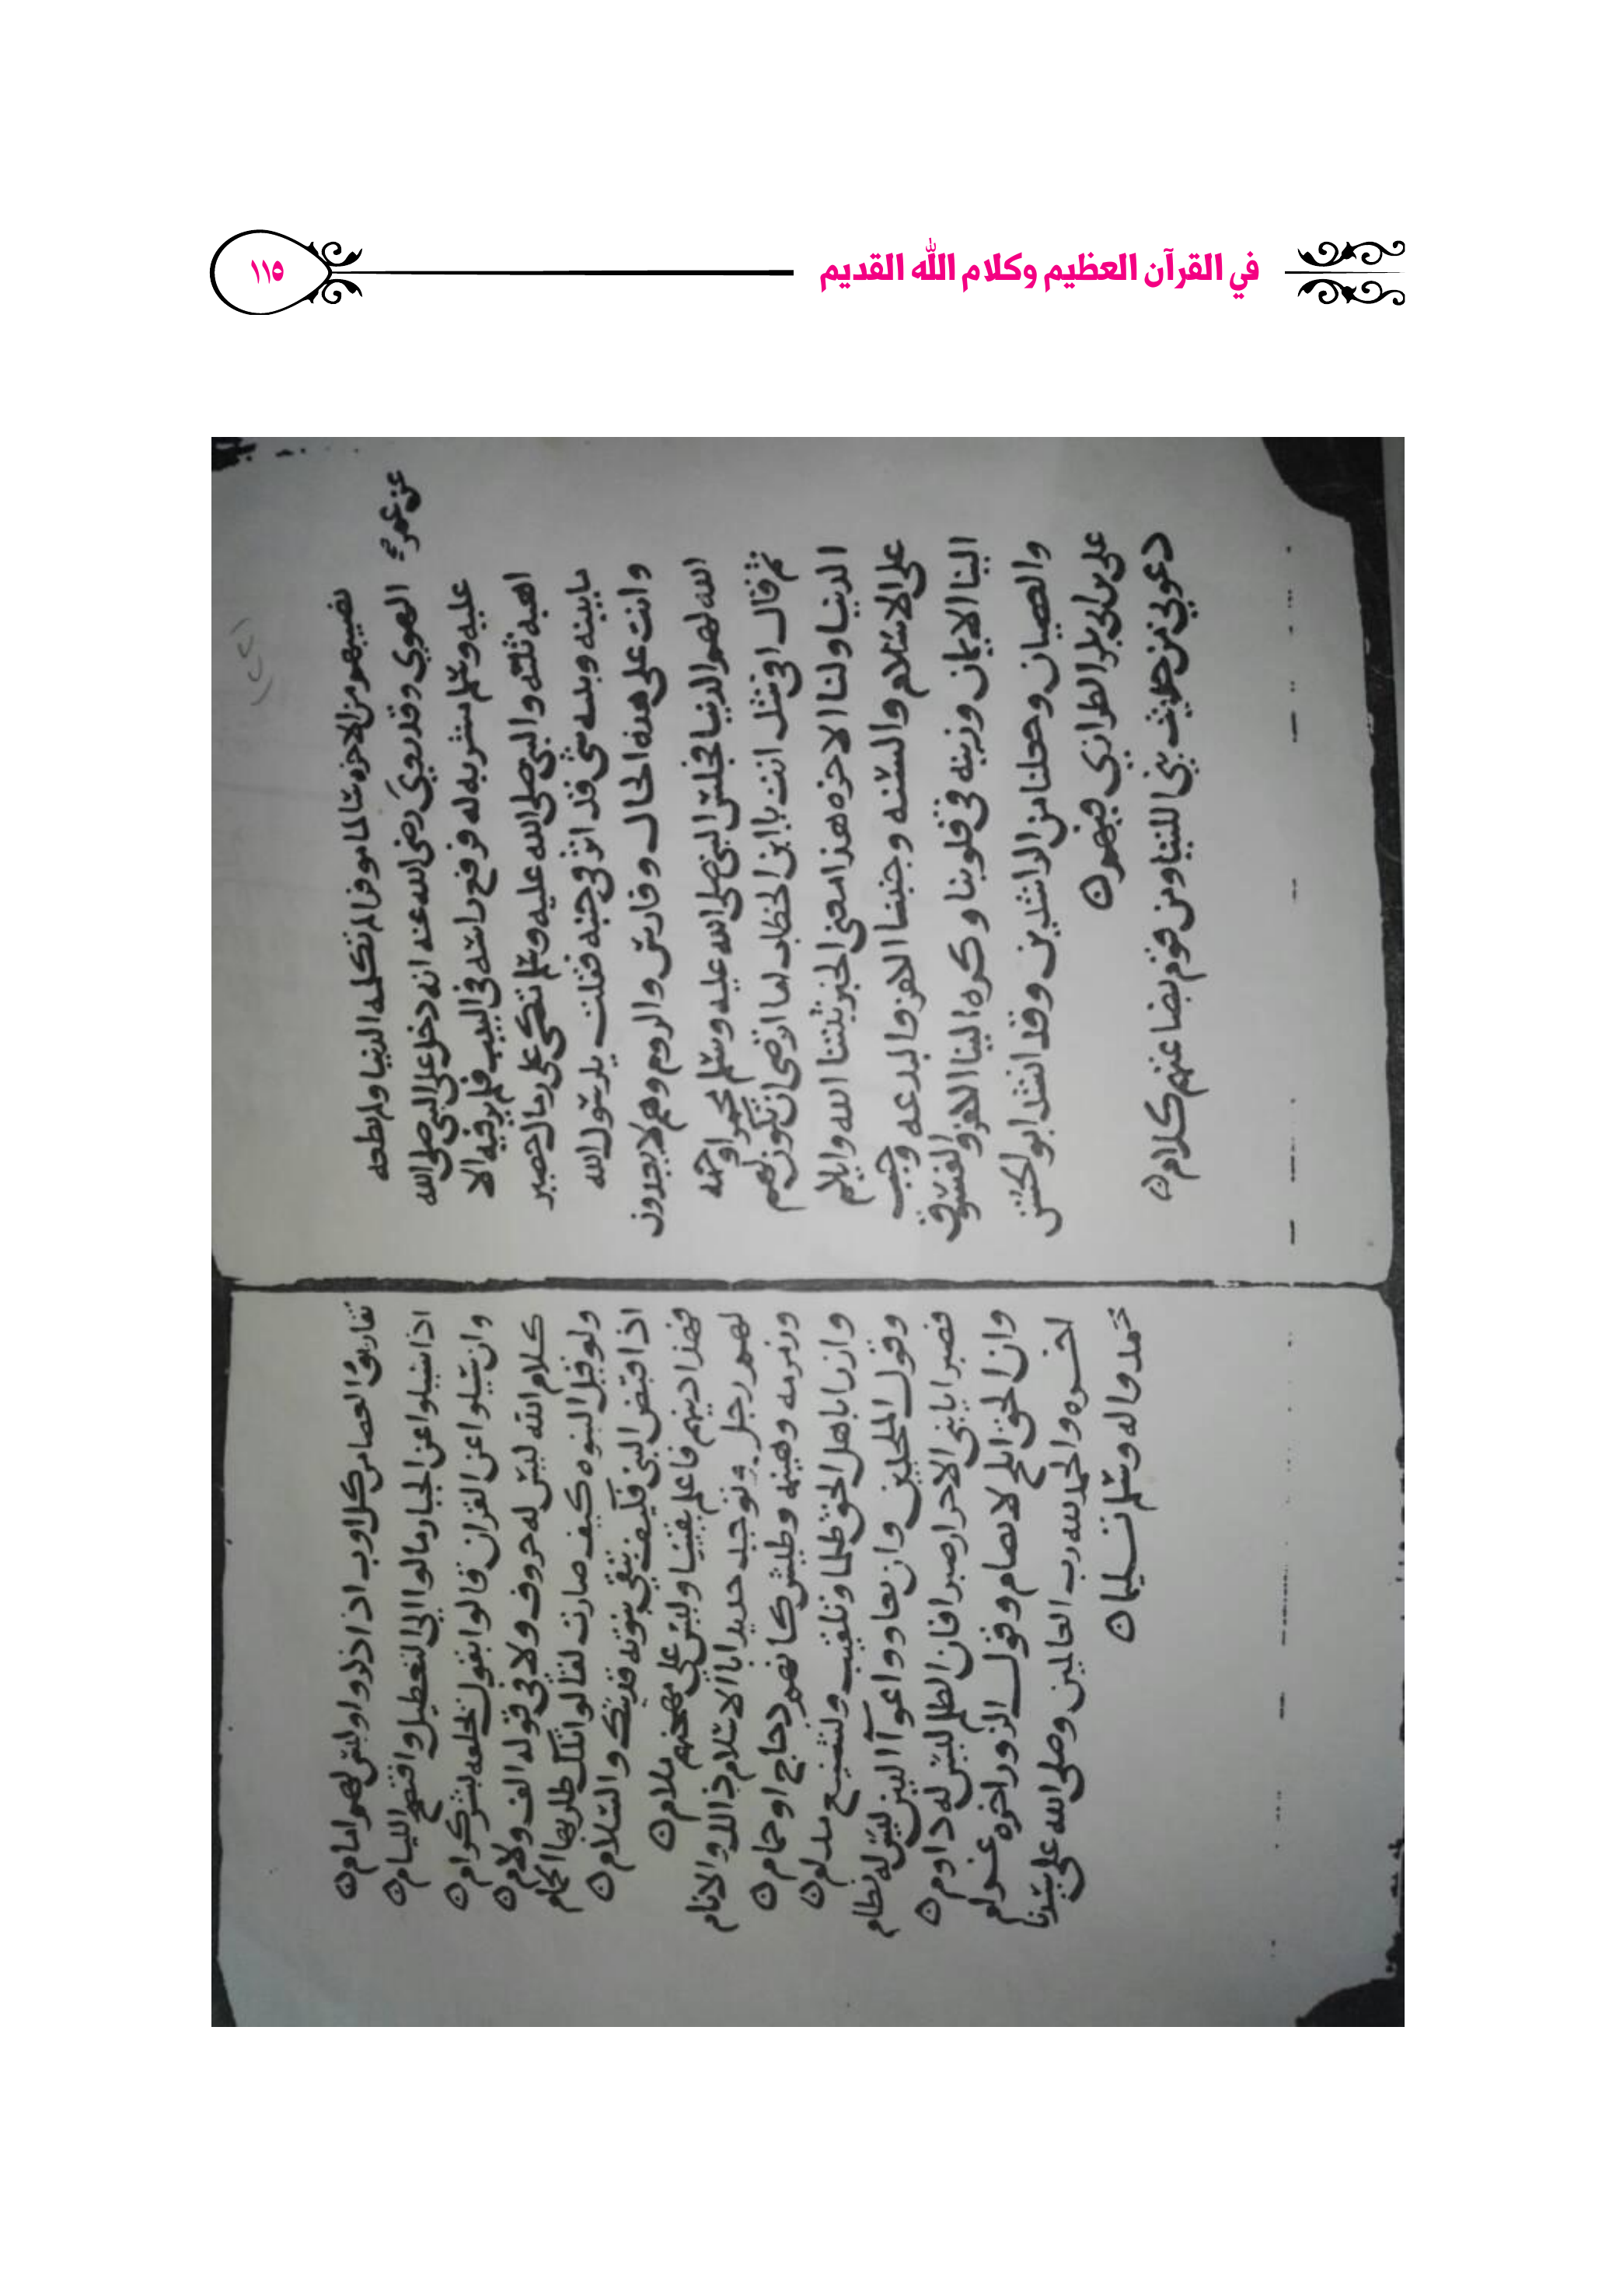 في القرآن العظيم وكلام الله القديم
١١٥
نصيبهم من الاخره سالما موفرا لم تكلمه الدنيا ولم يطعه
الهوي وقد روي رضي الله عنه انه دخل على النبي صلى الله
عن عمر
عليه وسلم مشربه له فرفع راسه في البيت فلم ير فيه الا
اهبه ثلثه والنبي صلى الله عليه وسلم متكي على رمال حصير
ما بينه وبينه شي قد اثر في جنبه فقلت يا رسول الله
وانت على هذه الحال وفارس والروم وهم لا يعبدون
الله لهم الدنيا فجلس النبي صلى الله عليه وسلم محمرا وجهه
ثم قال افي شك انت يا ابن الخطاب اما ترضى ان تكون لهم
الدنيا ولنا الاخره هذا معنى الخبر ثبتنا الله واياكم
على الاسلام والسنه وجنبنا الكفر والبدعه وحبب
الينا الايمان وزينه في قلوبنا وكره الينا الكفر والفسوق
والعصيان وجعلنا من الراشدين وقد انشد ابو الحسن
علي بن ابي بكر الطرازي فيهم
دعوني من حديث بني اللتيا ومن قوم بضاعتهم كلام
تفاريق العصا من كل اوب اذا ذكروا وليس لهم امام
اذا سيلوا عن الجبار مالوا الي التعطيل وافتضح الليام
وان سيلوا عن القران قالوا بقول بخلقه بشر كرام
كلام الله ليس له حروف ولا في قوله الف ولام
ولو قيل النبوه كيف صارت لقالوا تلك طار بها الحمام
اذا قبض النبي فكيف تبقي نبوته فديتك والسلام
فهذا دينهم فاعلم يقينا وليس علي مهجنهم ملام
لهم رجل وتوحيد جديد ابا الاسلام ذلك والانام
وزمزمه وهينمه وطيش كانهم دجاج او حمام
وازرا باهل الحق ظلما وتلقيب وتشنيع مدام
وقول الملحدين وان تعاووا عوآ الين ليس له نظام
فصبرا يا بني الاحرار صبرا فان الظلم ليس له دوام
وان الحق ابلج لا يضام وقول الزور اخره غرام
اخره والحمد لله رب العالمين وصلى الله على سيدنا
محمد واله وسلم تسليما